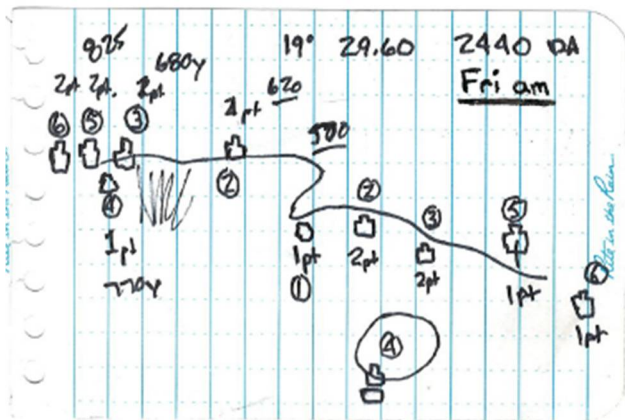 825 680y 19° 29.60 2440 DA
Fri am
2pt 2pt. 2pt 1pt 620
⑥ ⑤ ③ 500
② ② ③ ⑤
④
1pt 1pt 2pt 2pt 1pt ⑥
770y ① 1pt
④
Rite in the Rain